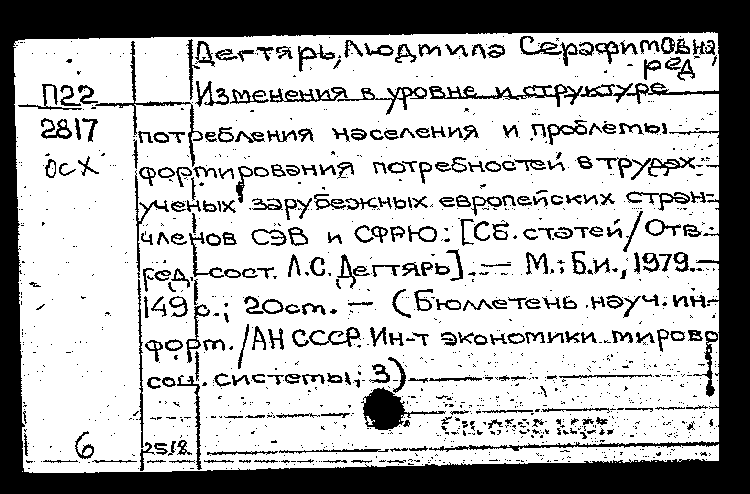 Дегтярь, Людмила Серафимовна,
ред
П22 Изменения в уровне и структуре
2817 потребления населения и проблемы
осх формирования потребностей в трудах
ученых зарубежных европейских стран-
членов СЭВ и СФРЮ: [Сб. статей / Отв.
ред.-сост. Л.С. Дегтярь]. — М.: Б.и., 1979. —
149 с.; 20см. — (Бюллетень науч. ин-
форм. / АН СССР. Ин-т экономики мирово
соц. системы; 3)
6 2518